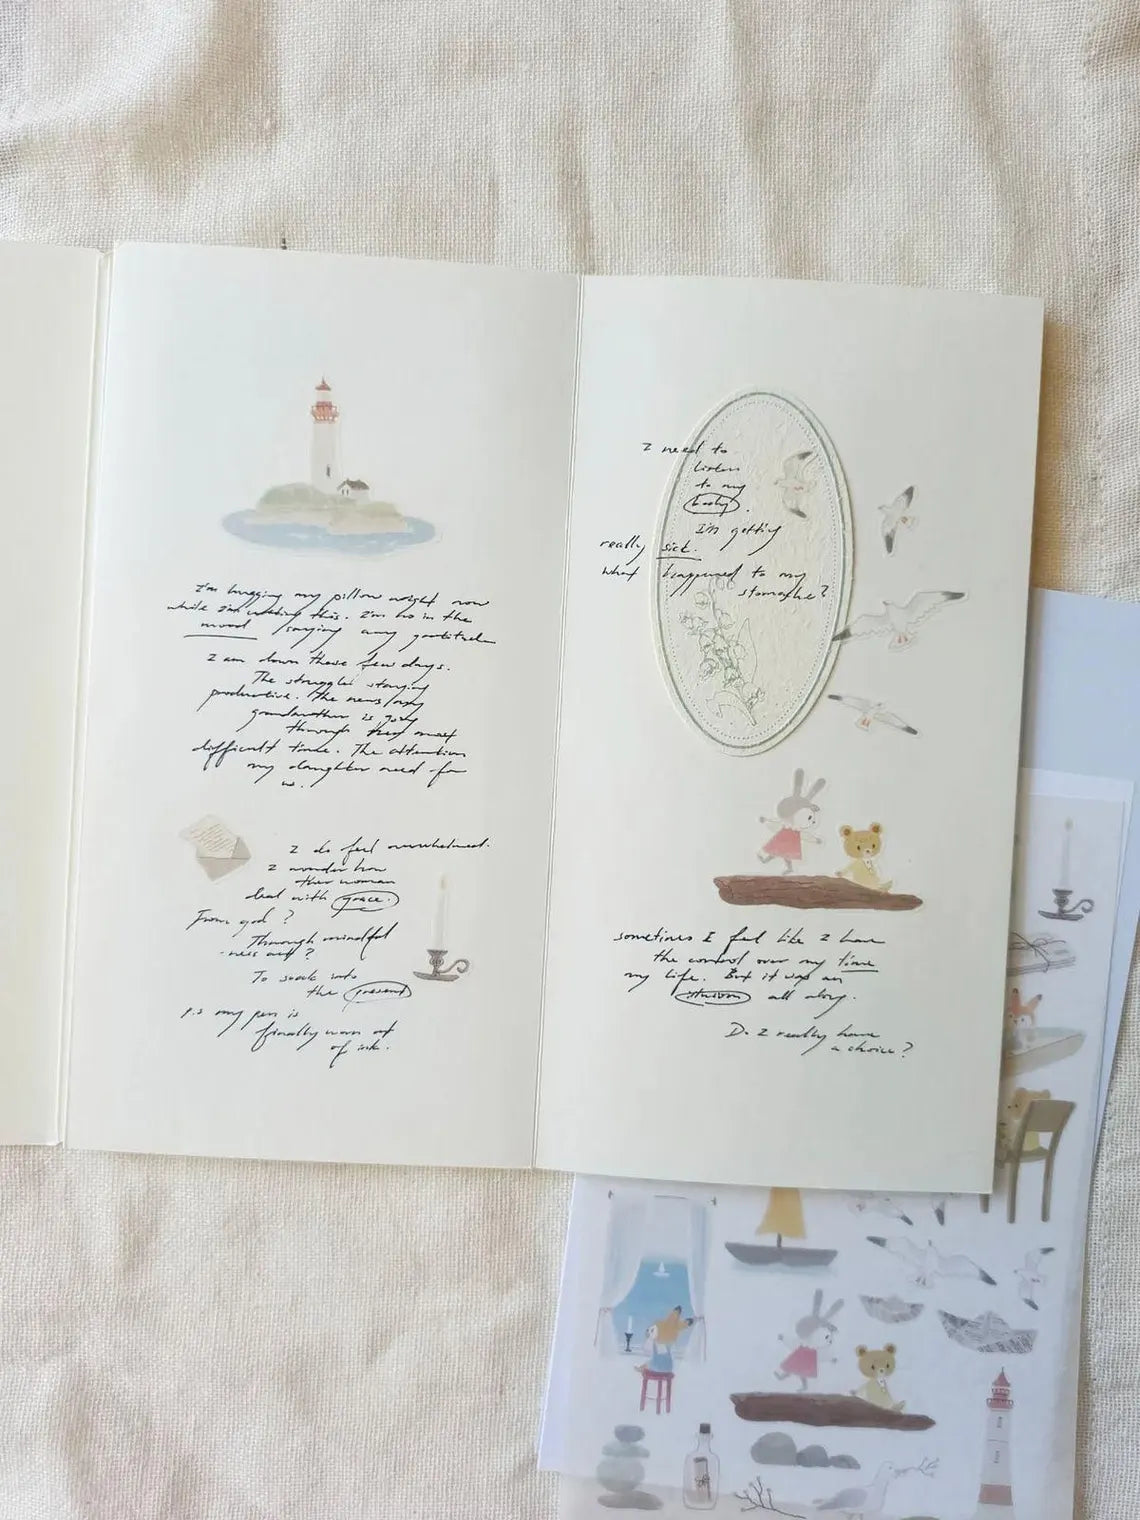 I'm hugging my pillow right now
while I'm writing this. I'm no in the
mood saying any gratitude
I am down these few days.
The struggle staying
productive. The news my
grandmother is going
through her most
difficult time. The attention
my daughter need for
me.
I do feel overwhelmed.
I wonder how
other woman
deal with grace.
From god?
Through mindful
-ness
To sneak into
the present
P.S my pen is
finally worn out
of ink.
I need to
listen
to my
body.
I'm getting
really sick.
what happened to my
stomache?
sometimes I feel like I have
the control over my time
my life. But it was an
illusion all along.
Do I really have
a choice?